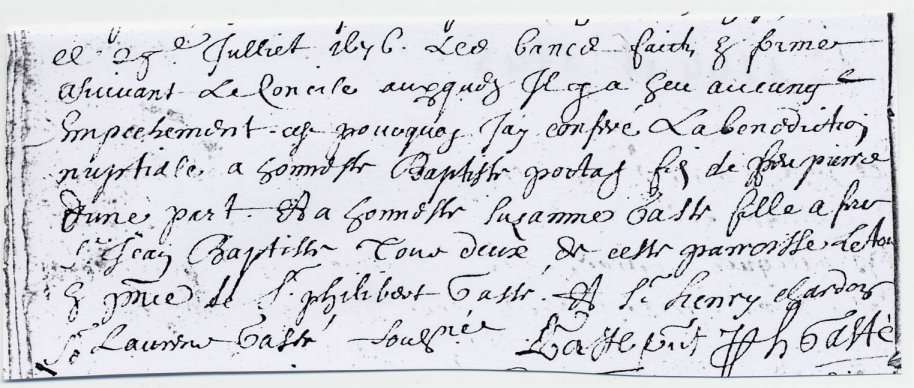 el 25e Julliet 1676. Les bances faicts & firmes
Ensuivant Le Concile auxquels Il gy a heu aucung
Empechement. cest pourquoy Jay conferé La benediction
nuptiale a honneste Baptiste portas fis de feu pierre
dune part. Et a honneste Suzanne Gasté fille a feu
Sr Jean Baptiste Tous deux de ceste parroisse
& pnce de Sr philibert Gasté. Et Sr henry
Sr Laurens Gasté Ph Gasté